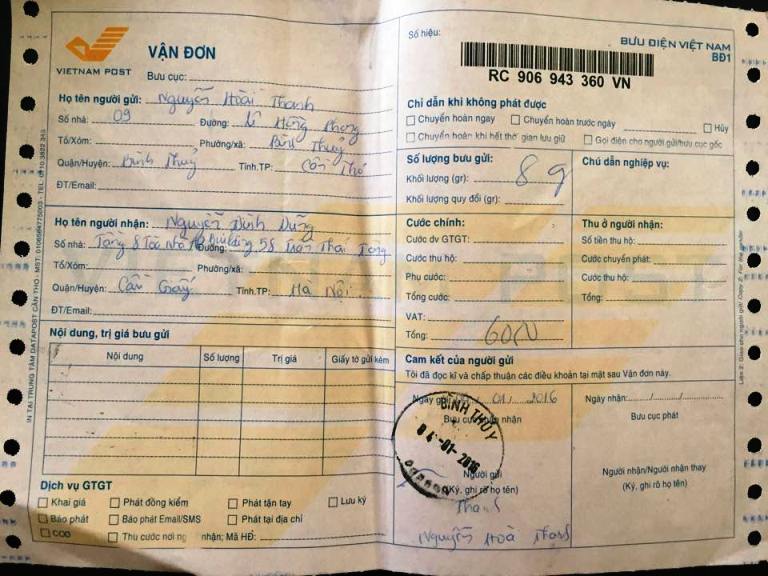 VIETNAM POST
VẬN ĐƠN
Bưu cục:
Họ tên người gửi: Nguyễn Hoài Thanh
Số nhà: 09 Đường: Lê Hồng Phong
Tổ/Xóm: Phường/xã: Bình Thủy
Quận/Huyện: Bình Thuỷ Tỉnh.TP: Cần Thơ
ĐT/Email:
Họ tên người nhận: Nguyễn Đình Dũng
Số nhà: Tầng 8 Toà Nhà Building 58 Đường: Trần Thái Tông
Tổ/Xóm: Phường/xã:
Quận/Huyện: Cầu Giấy Tỉnh.TP: Hà Nội
ĐT/Email:
Nội dung, trị giá bưu gửi
Nội dung Số lượng Trị giá Giấy tờ gửi kèm
Dịch vụ GTGT
Khai giá Phát đồng kiểm Phát tận tay Lưu ký
Báo phát Báo phát Email/SMS Phát tại địa chỉ
COD Thu cước nơi người nhận; Mã HĐ:
Số hiệu:
BƯU ĐIỆN VIỆT NAM
BĐ1
RC 906 943 360 VN
Chỉ dẫn khi không phát được
Chuyển hoàn ngay Chuyển hoàn trước ngày Hủy
Chuyển hoàn khi hết thời gian lưu giữ Gọi điện cho người gửi/bưu cục gốc
Số lượng bưu gửi:
Khối lượng (gr): 8g
Khối lượng quy đổi (gr):
Chú dẫn nghiệp vụ:
Cước chính:
Cước dv GTGT:
Cước thu hộ:
Phụ cước:
Tổng cước:
VAT:
Tổng:
Thu ở người nhận:
Số tiền thu hộ:
Cước chuyển phát:
Cước thu hộ:
Tổng:
Cam kết của người gửi
Tôi đã đọc kĩ và chấp thuận các điều khoản tại mặt sau Vận đơn này.
Ngày gửi 01 2016
Bưu cục nhận
BÌNH THỦY
04-01-2016
Người gửi
(Ký, ghi rõ họ tên)
Thanh
Nguyễn Hoài Thanh
Ngày nhận:
Bưu cục phát
Người nhận/Người nhận thay
(Ký, ghi rõ họ tên)